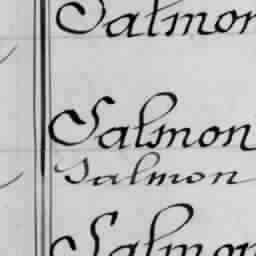 Salmon
Salmon
Salmon
Salmon